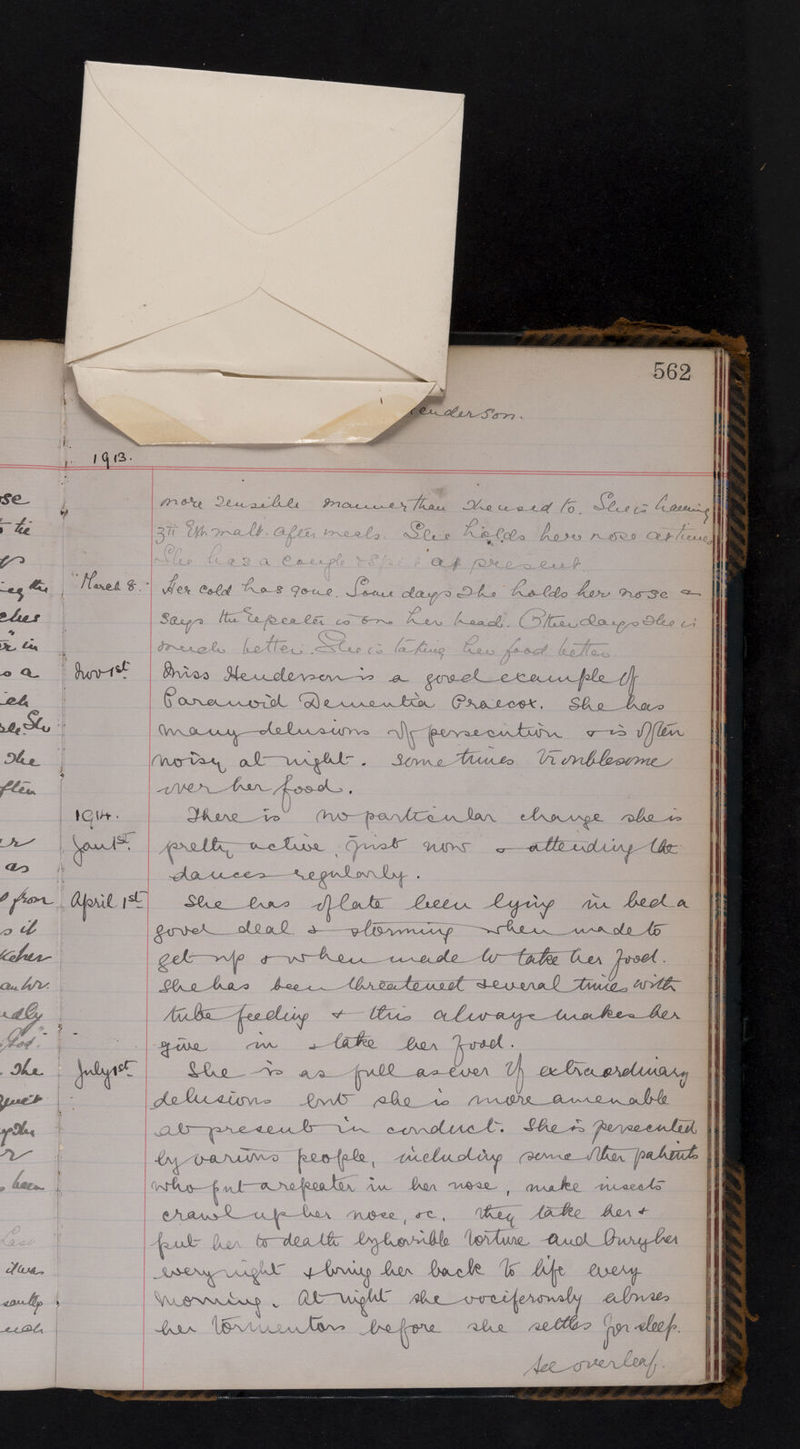 562
enderson.
1913.
more sensible manner than she used to. She is having
3ii Ext. malt. after meals. She holds her nose at times
She has a cough & at present.
March 8. Her cold has gone. Some days she holds her nose &
says the repeater is on her head. Other days she is
much better. She is taking her food better
Nov 1st Miss Henderson is a good example of
Paranoid Dementia Praecox. She has
many delusions of persecution & is often
noisy at night. Sometimes troublesome
over her food.
1914. There is no particular change she is
Jan 1st. pretty active just now & attending the
dances regularly.
April 1st She has of late been lying in bed a
good deal & storming when made to
get up & when made to take her food.
She has been threatened several times with
tube feeding & this always makes her
give in & take her food.
July 1st She is as full as ever of extraordinary
delusions but she is more amenable
at present in conduct. She is persecuted
by various people, including some other patients
who put a repeater in her nose, make insects
crawl up her nose, &c. They take her &
put her to death by horrible torture and bury her
every night & bring her back to life every
morning. At night she vociferously abuses
her tormentors before she settles for sleep.
See overleaf.